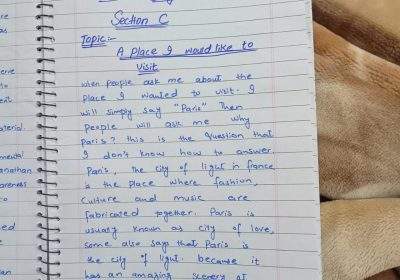 Section C
Topic:-
A Place I would like to
visit
when people ask me about the
place I wanted to visit. I
will simply say "Paris" Then
people will ask me why
Paris? this is the question that
I don't know how to answer.
Paris, the city of light in france
is the place where fashion,
culture and music are
fabricated together. Paris is
usually known as city of love,
some also says that Paris is
the city of light. because it
has an amazing scenery at